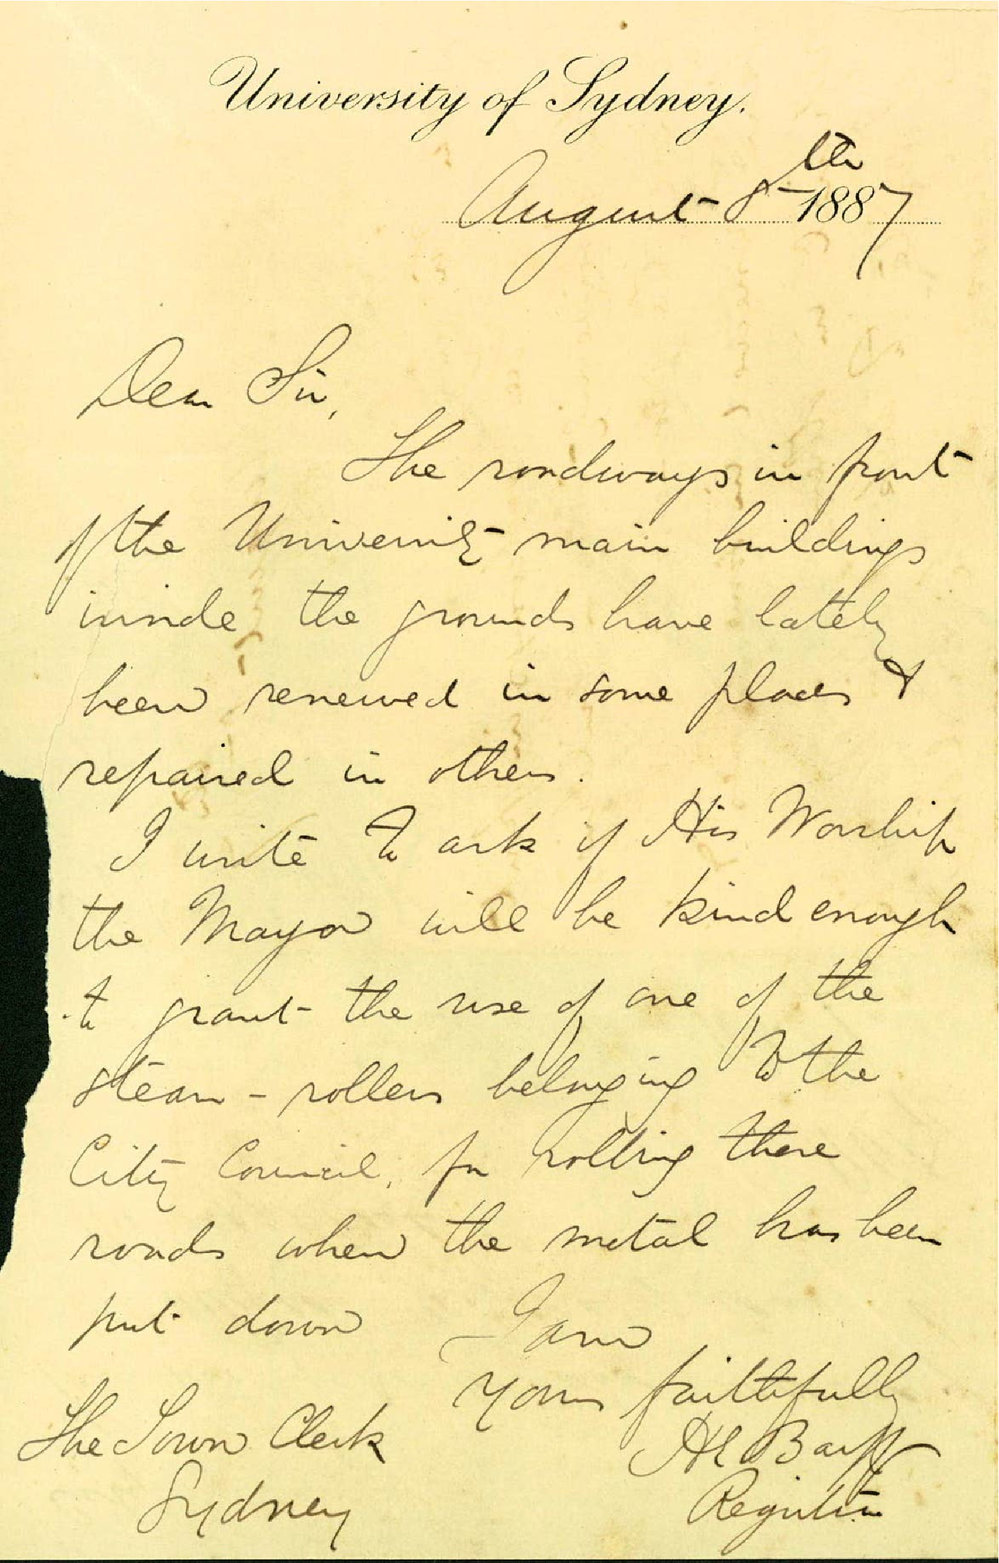 University of Sydney.
August 8th 1887
Dear Sir,
The roadways in front
of the University main buildings
inside the grounds have lately
been renewed in some places &
repaired in others.
I write to ask if His Worship
the Mayor will be kind enough
to grant the use of one of the
steam-rollers belonging to the
City Council, for rolling these
roads when the metal has been
put down
I am
Yours faithfully
HE Barff
Registrar
The Town Clerk
Sydney